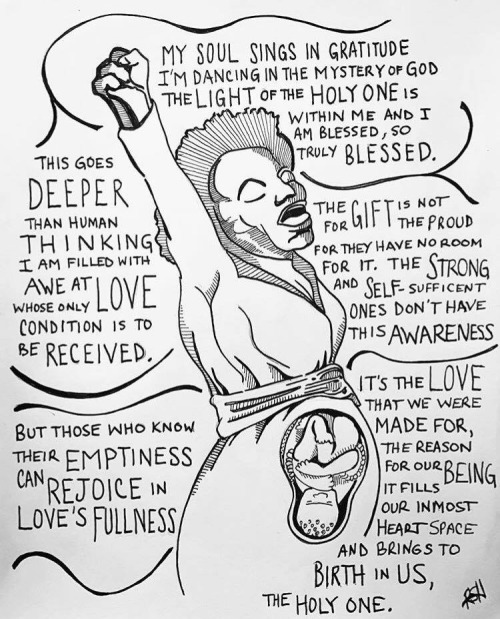 MY SOUL SINGS IN GRATITUDE
I'M DANCING IN THE MYSTERY OF GOD
THE LIGHT OF THE HOLY ONE IS
WITHIN ME AND I
AM BLESSED, SO
TRULY BLESSED.
THIS GOES
DEEPER
THAN HUMAN
THINKING
I AM FILLED WITH
AWE AT LOVE
WHOSE ONLY
CONDITION IS TO
BE RECEIVED.
THE GIFT IS NOT
FOR THE PROUD
FOR THEY HAVE NO ROOM
FOR IT. THE STRONG
AND SELF-SUFFICENT
ONES DON'T HAVE
THIS AWARENESS
BUT THOSE WHO KNOW
THEIR EMPTINESS
CAN REJOICE IN
LOVE'S FULLNESS
IT'S THE LOVE
THAT WE WERE
MADE FOR,
THE REASON
FOR OUR BEING
IT FILLS
OUR INMOST
HEART SPACE
AND BRINGS TO
BIRTH IN US,
THE HOLY ONE.